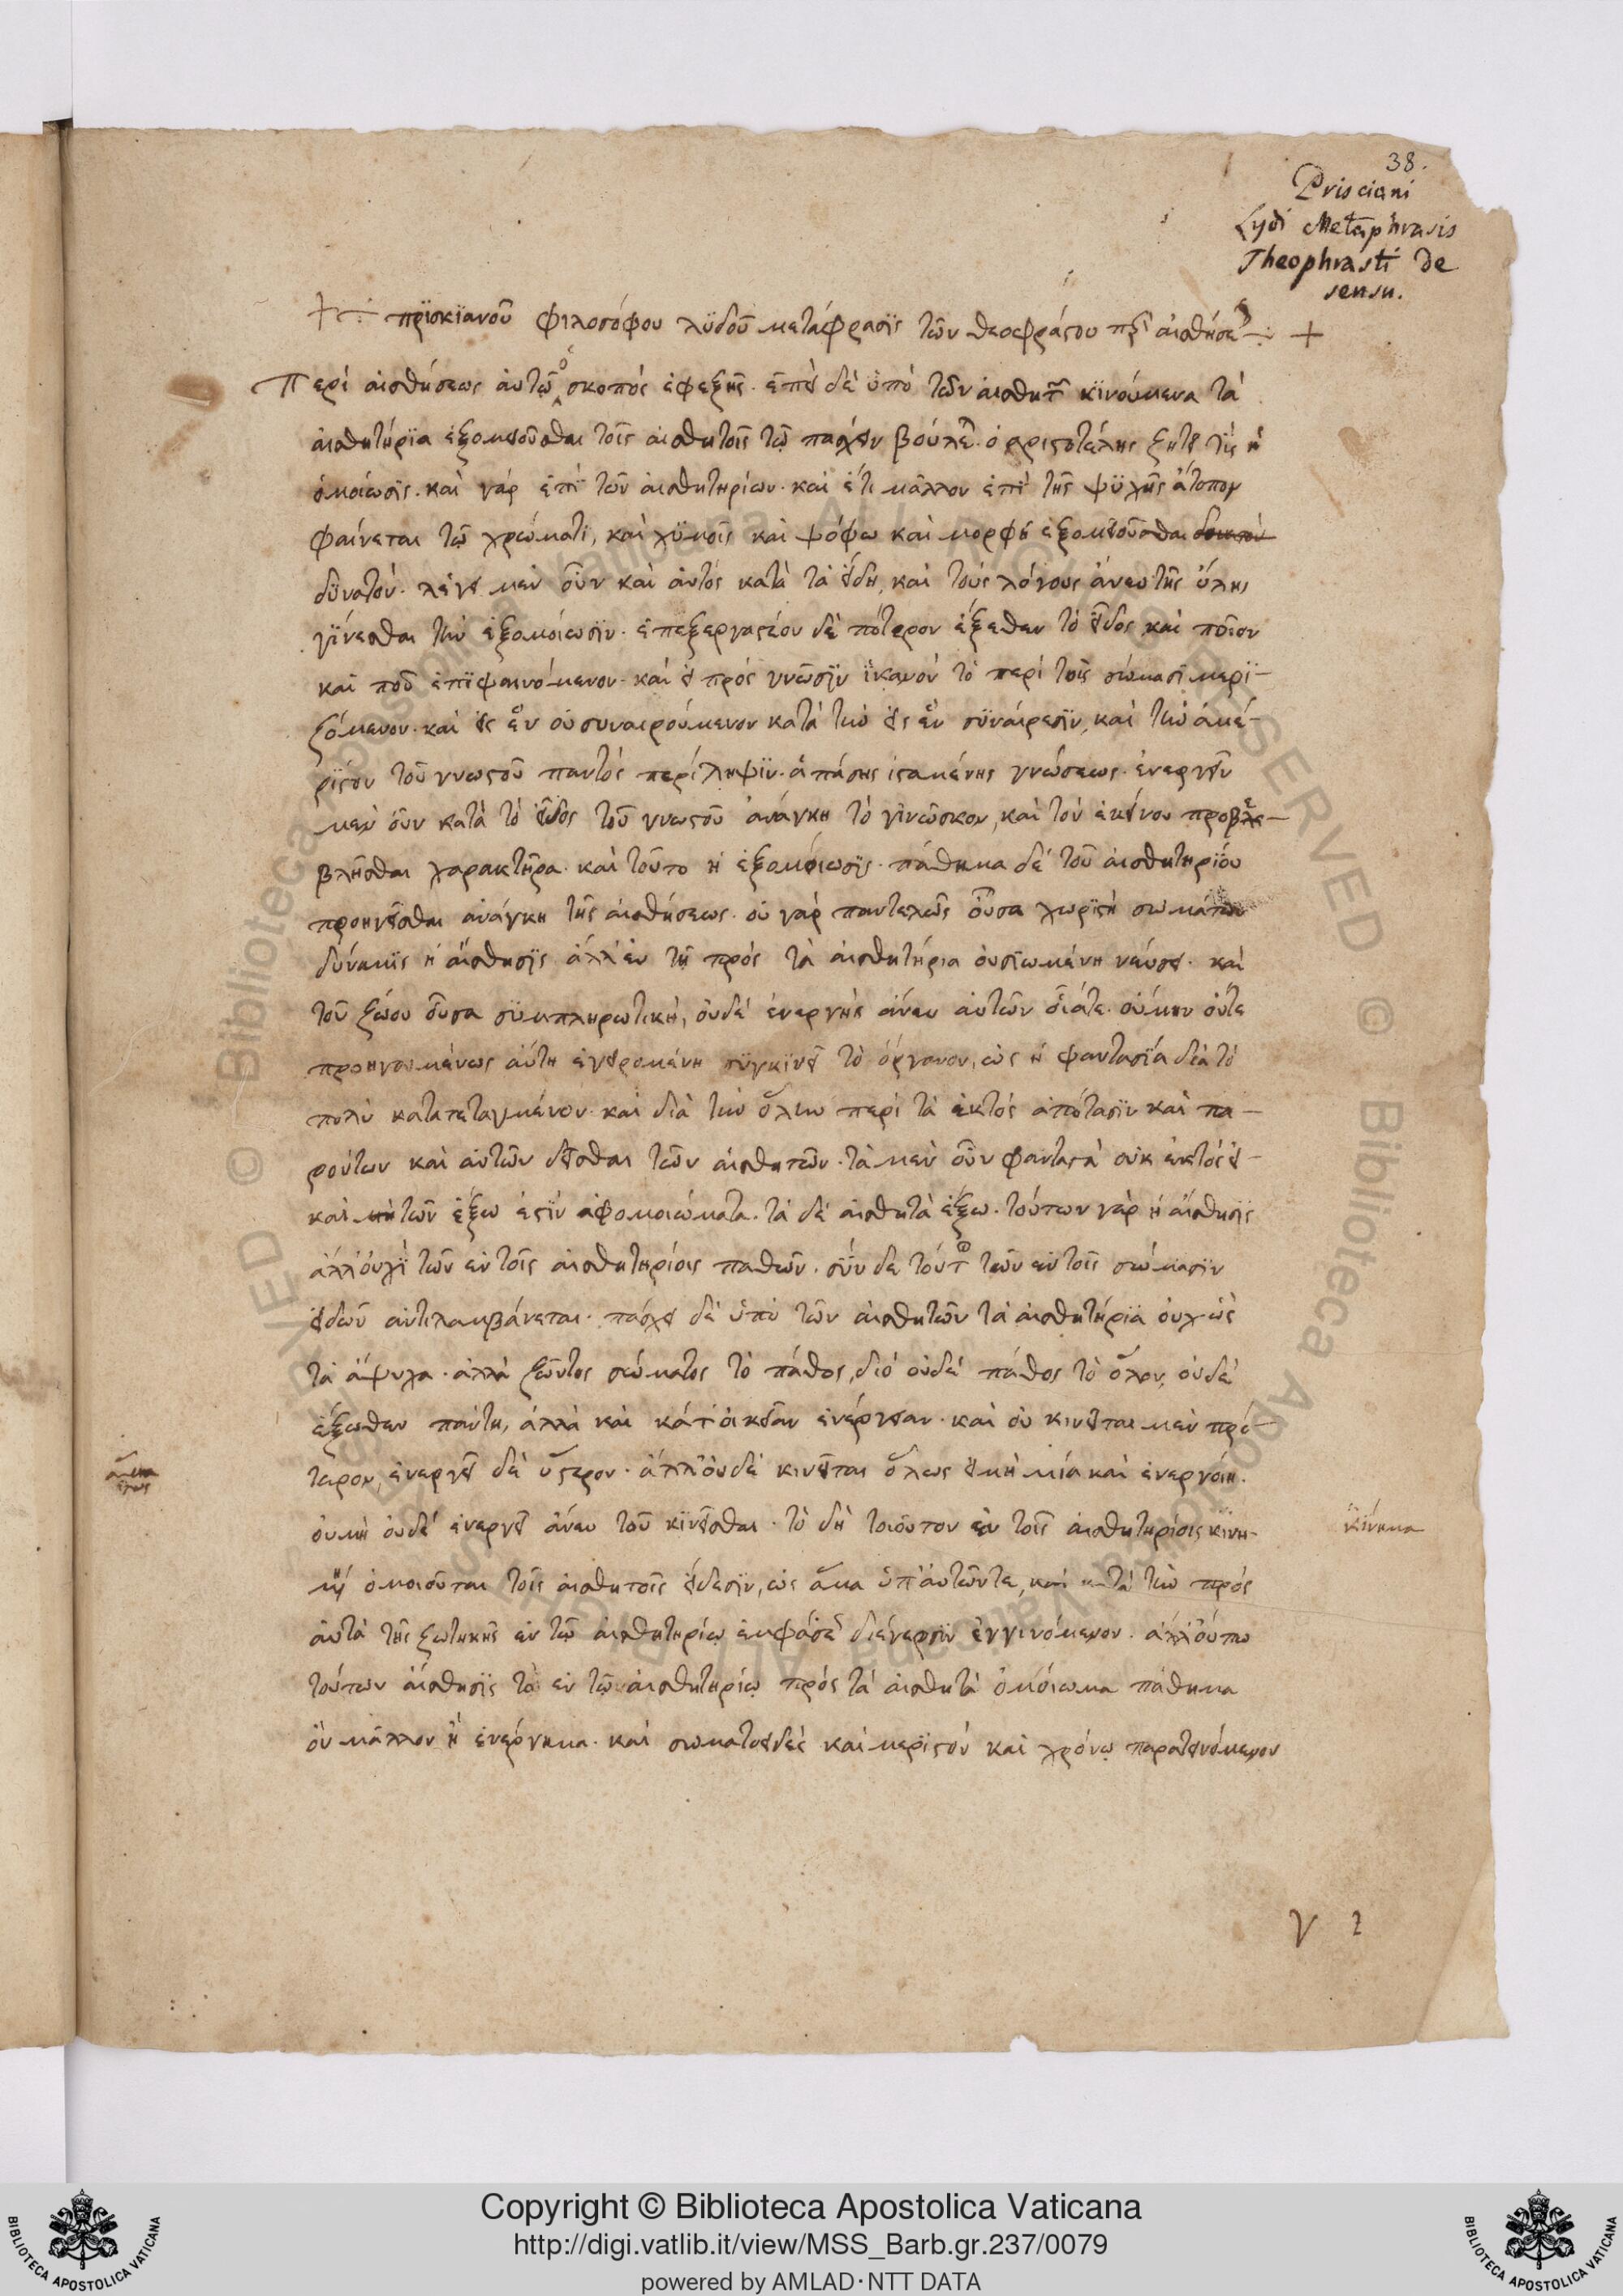 38.
Prisciani
Lydi Metaphrasis
Theophrasti de
sensu.
+ πρϊσκϊανοῦ φιλοσόφου λϋδοῦ μετάφρασϊς τῶν θεοφράστου περὶ αἰσθήσεως +
Περὶ αἰσθήσεως ἀυτῶ ὁ σκοπός ἐφεξῆς. ἐπεὶ δὲ ὑπὸ τῶν αἰσθητῶν κϊνούμενα τὰ
ἀισθητήρϊα ἐξομοιοῦσθαι τοῖς αἰσθητοῖς τῶ πάσχειν βούλεται ὁ αριστοτέλης ζητεῖ τίς ἡ
ὁμοίωσϊς. καὶ γάρ ἐπὶ τῶν ἀισθητηρίων. καὶ ἔτι μᾶλλον ἐπὶ τῆς ψϋχῆς ἄτοπον
φαίνεται τῶ χρώματι, καὶ χϋμοῖς καὶ ψόφω καὶ μορφῆ ἐξομοιοῦσθαι
δϋνατόν. λέγει μεν οὖν καὶ ἀυτός κατὰ τὰ εἴδη, καὶ τοὺς λόγους ἄνευ τῆς ὕλης
γϊνεσθαι τὴν ἐξομοίωσϊν. ἐπεξεργαστέον δὲ πότερον ἔξωθεν τὸ εἶδος καὶ ποῖον
καὶ ποῦ ἐπϊφαινόμενον. καὶ εἰ πρὸς γνῶσϊν ϊκανόν τὸ περὶ τοῖς σώμασϊ μερϊ-
ζόμενον. καὶ εἰς ἓν οὐ συναιρούμενον κατὰ τὴν εἰς ἓν συναίρεσϊν, καὶ τὴν ἀμέ-
ρϊστον τοῦ γνωστοῦ παντός περίληψϊν. ἁπάσης ἱσταμένης γνώσεως. ἐνεργεῖν
μεν οὖν κατὰ τὸ εἶδος τοῦ γνωστοῦ ἀνάγκη τὸ γϊνῶσκον, καὶ τὸν ἐκείνου προβε-
βλῆσθαι χαρακτῆρα. καὶ τοῦτο ἡ ἐξομοίωσϊς. πάθημα δὲ τοῦ ἀισθητηρϊόυ
προηγεῖσθαι ἀνάγκη τῆς ἀισθήσεως. οὐ γὰρ παντελῶς οὖσα χωρϊστὴ σωμάτων
δύναμϊς ἡ ἄισθησϊς ἀλλ' ἐν τῆ πρὸς τὰ ἀισθητήρια οὐσϊωμένη νεύσει. καὶ
τοῦ ζώου οὖσα σϋμπληρωτική, ὀυδὲ ἐνεργὴς ἄνευ ἀυτῶν οἷάτε. οὐμὴν οὔτε
προηγουμένως ἀύτη ἐγειρομένη σϋγκϊνεῖ τὸ ὄργανον, ὡς ἡ φαντασϊά δϊὰ τὸ
πολὺ κατατεταγμένον καὶ διὰ τὴν ὅλην περὶ τὰ ἐκτός ἀπότασϊν καὶ πα-
ρόντων καὶ ἀυτῶν δεῖσθαι τῶν ἀισθητῶν. τὰ μεν οὖν φανταστὰ οὐκ ἐκτός εἰ
καὶ τῶν ἔξω ἐστὶν ἀφομοιώματα. τὰ δὲ ἀισθητὰ ἔξω. τούτων γὰρ ἡ ἄισθησϊς
ἀλλ' ὀυχὶ τῶν ἐν τοῖς ἀισθητηρίοις παθῶν. σὺν δὲ τούτοις τῶν ἐν τοῖς σώμασϊν
εἰδῶν ἀντιλαμβάνεται. πάσχει δὲ ὑπὸ τῶν ἀισθητῶν τὰ ἀισθητήρϊα ὀυχ ὡς
τὰ ἄψυχα. ἀλλὰ ζῶντος σώματος τὸ πάθος, διὸ οὐδὲ πάθος τὸ ὅλον, οὐδὲ
ἔξωθεν πάντη, ἀλλὰ καὶ κατ' ὀικείαν ἐνέργειαν. καὶ οὐ κινεῖται μεν πρό-
τερον, ἐνεργεῖ δὲ ὕστερον. ἀλλ' ὀυδὲ κινεῖται ὅλως εἰ μὴ μία καὶ ἐνεργοίη.
ὀυμὴν ὀυδὲ ἐνεργεῖ ἄνευ τοῦ κϊνεῖσθαι. τὸ δὴ τοιοῦτον ἐν τοῖς ἀισθητηρίοις κϊνη-
κίνημα
ὁμοιοῦται τοῖς ἀισθητοῖς εἴδεσϊν, ὡς ἅμα ὑπ' ἀυτῶντε, καὶ κατὰ τὴν πρὸς
ἀυτὰ τῆς ζωτικῆς ἐν τῶ ἀισθητηρίω ἐμφάσεως διέγερσϊν ἐγγινόμενον. ἀλλ' οὔπω
τούτων ἄισθησϊς τὸ ἐν τῶ ἀισθητηρίω πρὸς τὰ ἀισθητὰ ὁμοίωμα πάθημα
ὂν μᾶλλον ἢ ἐνέργημα. καὶ σωματοειδὲς καὶ μερϊστόν καὶ χρόνω παρατεινόμενον
Copyright © Biblioteca Apostolica Vaticana
http://digi.vatlib.it/view/MSS_Barb.gr.237/0079
powered by AMLAD·NTT DATA
BIBLIOTECA APOSTOLICA VATICANA
BIBLIOTECA APOSTOLICA VATICANA